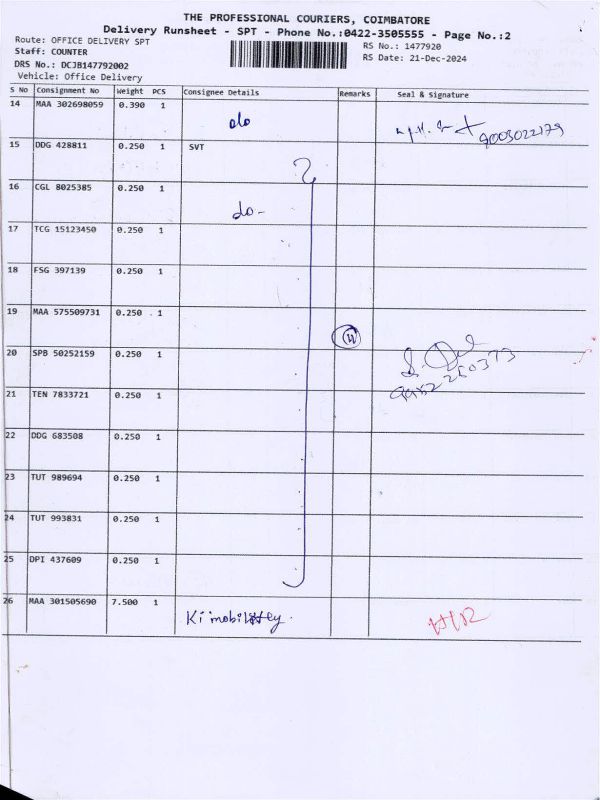 THE PROFESSIONAL COURIERS, COIMBATORE
Delivery Runsheet - SPT - Phone No.:0422-3505555 - Page No.:2
Route: OFFICE DELIVERY SPT
RS No.: 1477920
Staff: COUNTER
RS Date: 21-Dec-2024
DRS No.: DCJB147792002
Vehicle: Office Delivery
S No Consignment No Weight PCS Consignee Details Remarks Seal & Signature
14 MAA 302698059 0.390 1 do 9003022179
15 DDG 428811 0.250 1 SVT
16 CGL 8025385 0.250 1 do-
17 TCG 15123450 0.250 1
18 FSG 397139 0.250 1
19 MAA 575509731 0.250 1
20 SPB 50252159 0.250 1
21 TEN 7833721 0.250 1
22 DDG 683508 0.250 1
23 TUT 989694 0.250 1
24 TUT 993831 0.250 1
25 DPI 437609 0.250 1
26 MAA 301505690 7.500 1 Ki mobility.